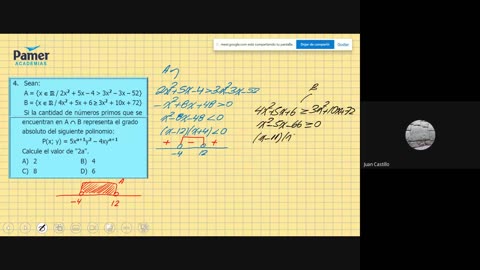 Pamer
ACADEMIAS
meet.google.com está compartiendo tu pantalla.
Dejar de compartir
Ocultar
4. Sean:
A = {x ∈ ℝ / 2x² + 5x – 4 > 3x² – 3x – 52}
B = {x ∈ ℝ / 4x² + 5x + 6 ≥ 3x² + 10x + 72}
Si la cantidad de números primos que se
encuentran en A ∩ B representa el grado
absoluto del siguiente polinomio:
Calcule el valor de "2a".
A) 2 B) 4
C) 8 D) 6
A
2x²+5x-4>3x²-3x-52
-x²+8x+48>0
x²-8x-48<0
(x-12)(x+4)<0
+ - +
-4 12
B
4x²+5x+6≥3x²+10x+72
x²-5x-66≥0
(x-11)(x
A
-4 12
Juan Castillo